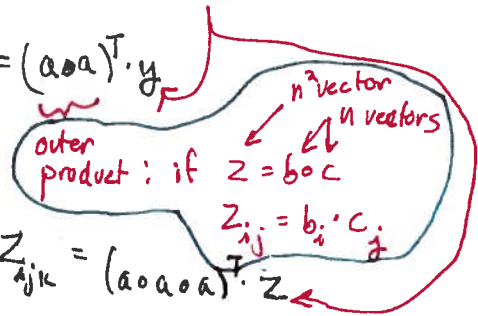 = (a∘a)ᵀ · y
n² vector
n vectors
outer
product : if z = b∘c
z_ij = b_i · c_j
z_ijk = (a∘a∘a)ᵀ · z